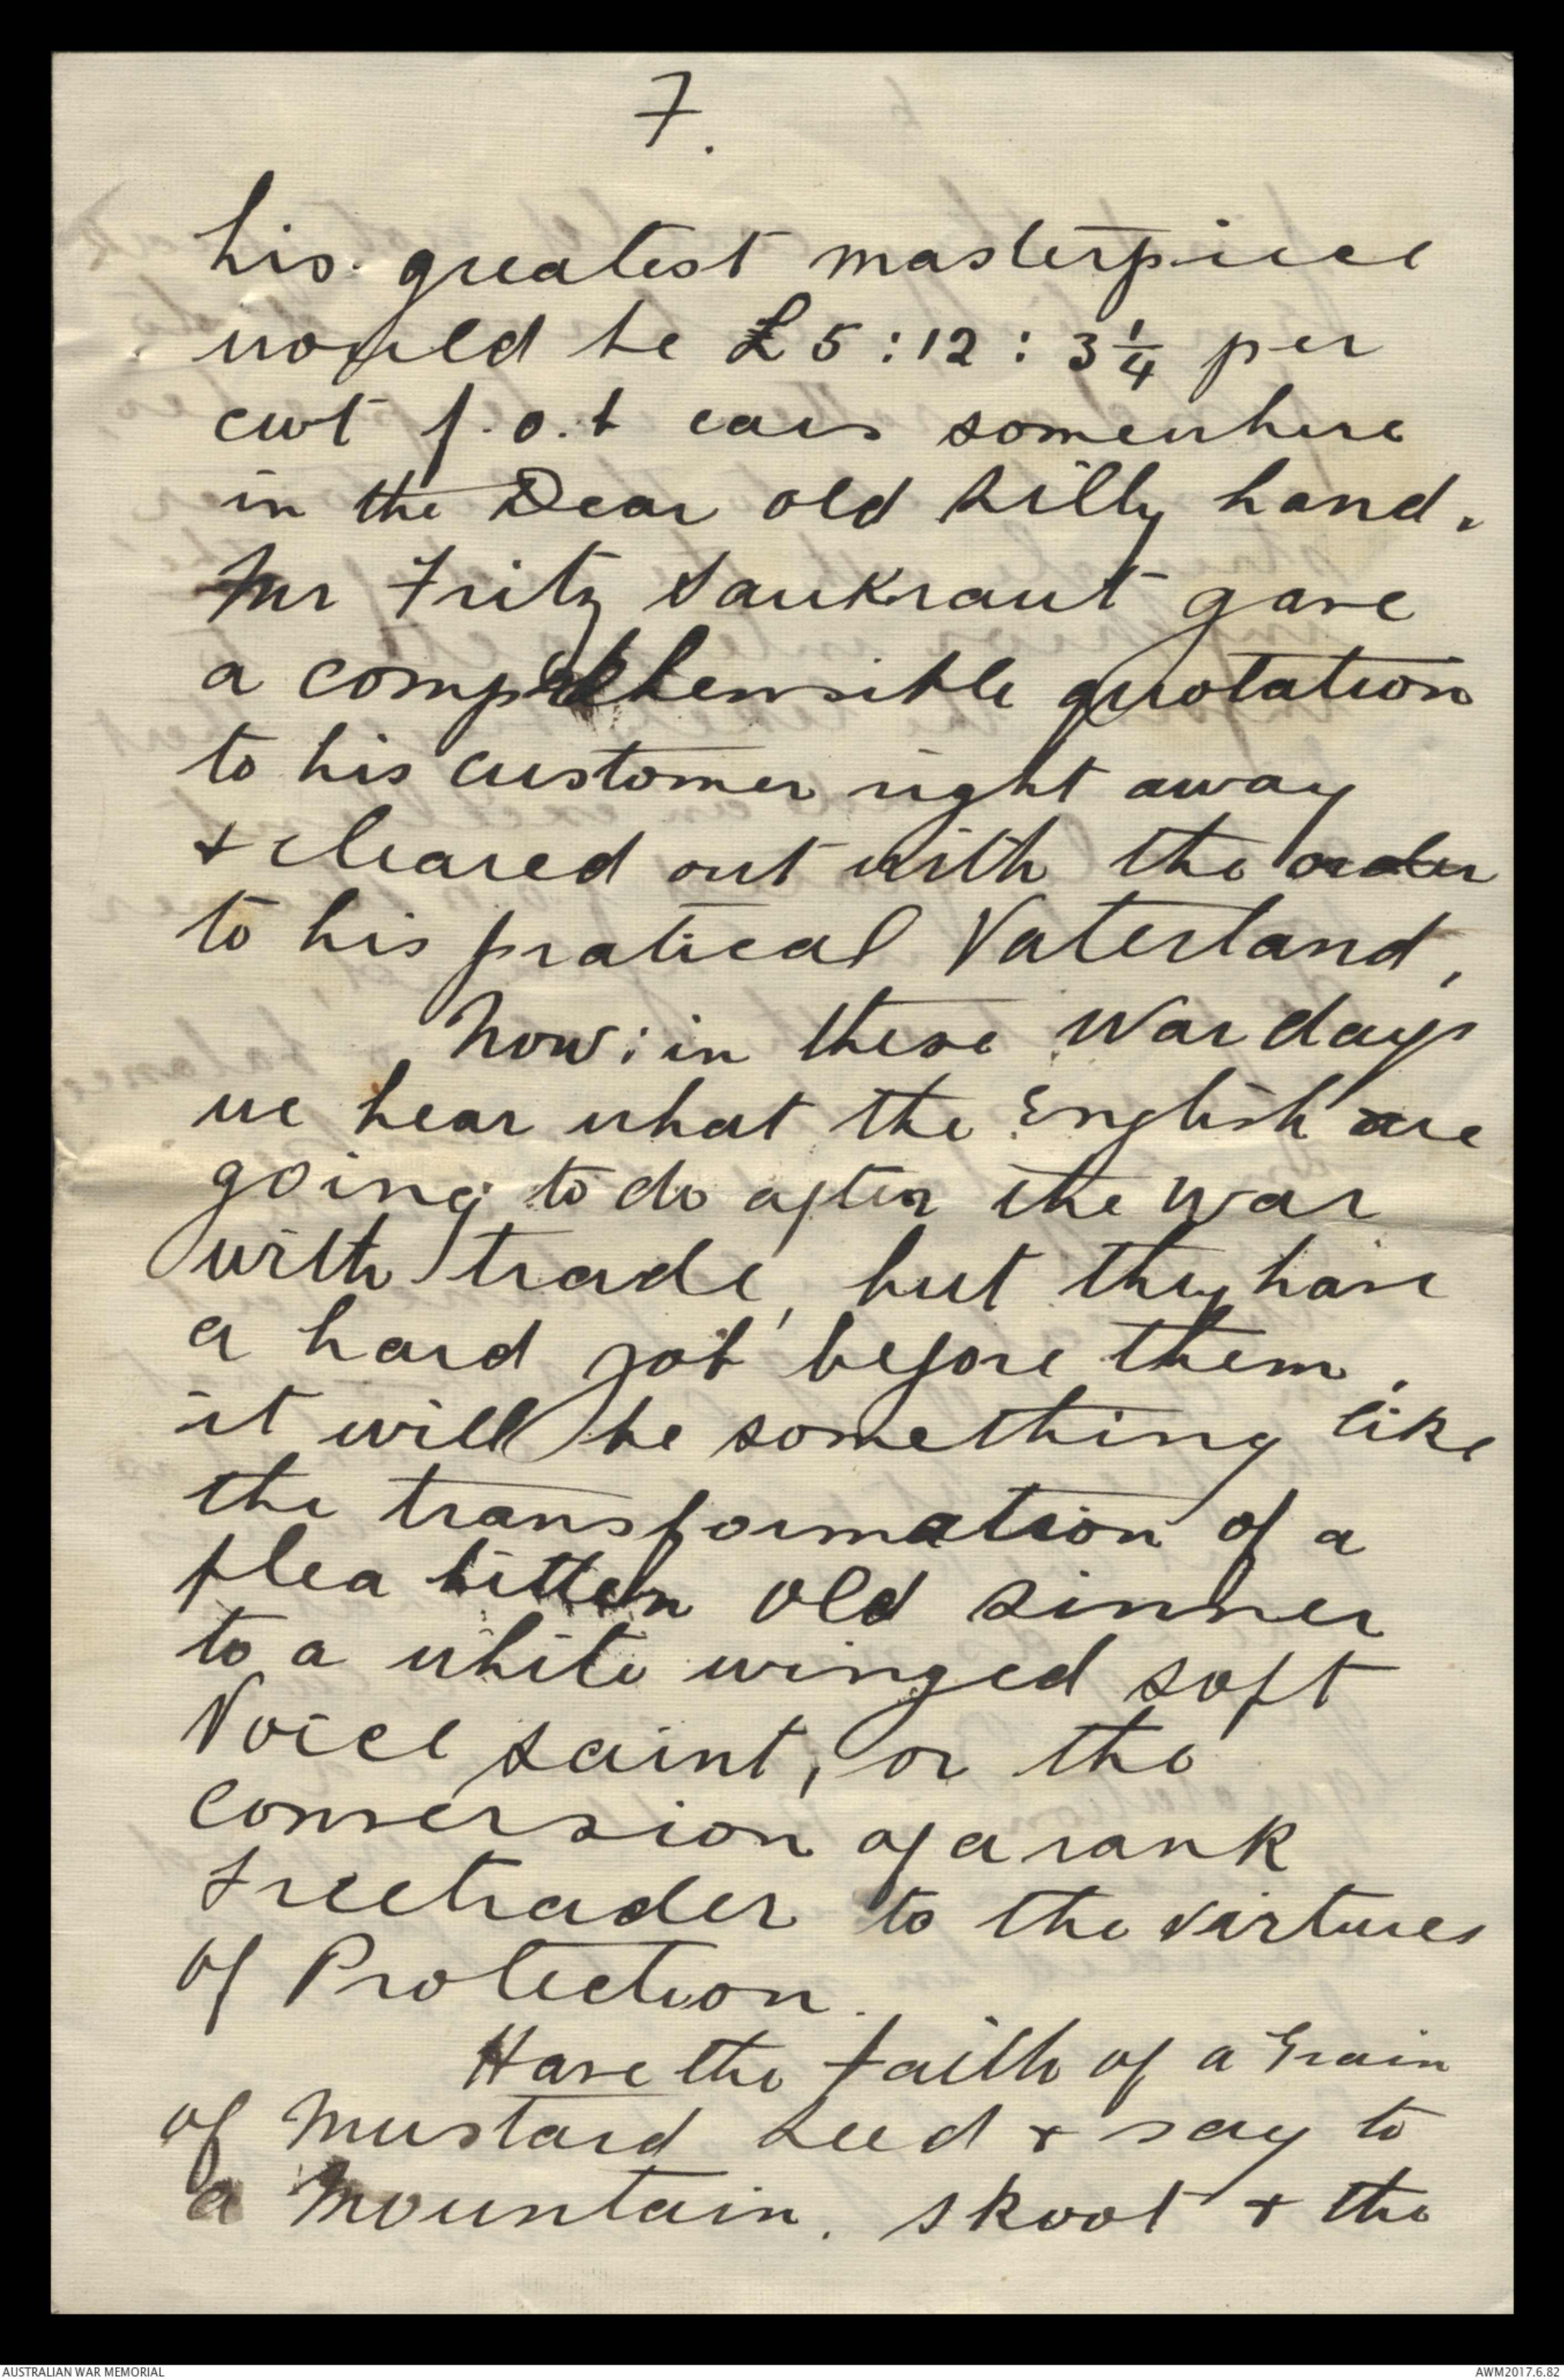 7.
his greatest masterpiece
would be £5:12:3¼ per
cwt f.o.b cars somewhere
in the Dear old Silly Land.
Mr Fritz Saukraut gave
a comprehensible quotation
to his customer right away
+ cleared out with the order
to his pratical Vaterland,
Now: in these War days
we hear what the English are
going to do after the war
with trade, but they have
a hard job before them,
it will be something like
the transformation of a
flea bitten old sinner
to a white winged soft
Voice saint, or the
conversion of a rank
Freetrader to the virtues
of Protection.
Have the faith of a Grain
of Mustard Seed + say to
a Mountain. skoot + the
AUSTRALIAN WAR MEMORIAL
AWM2017.6.82